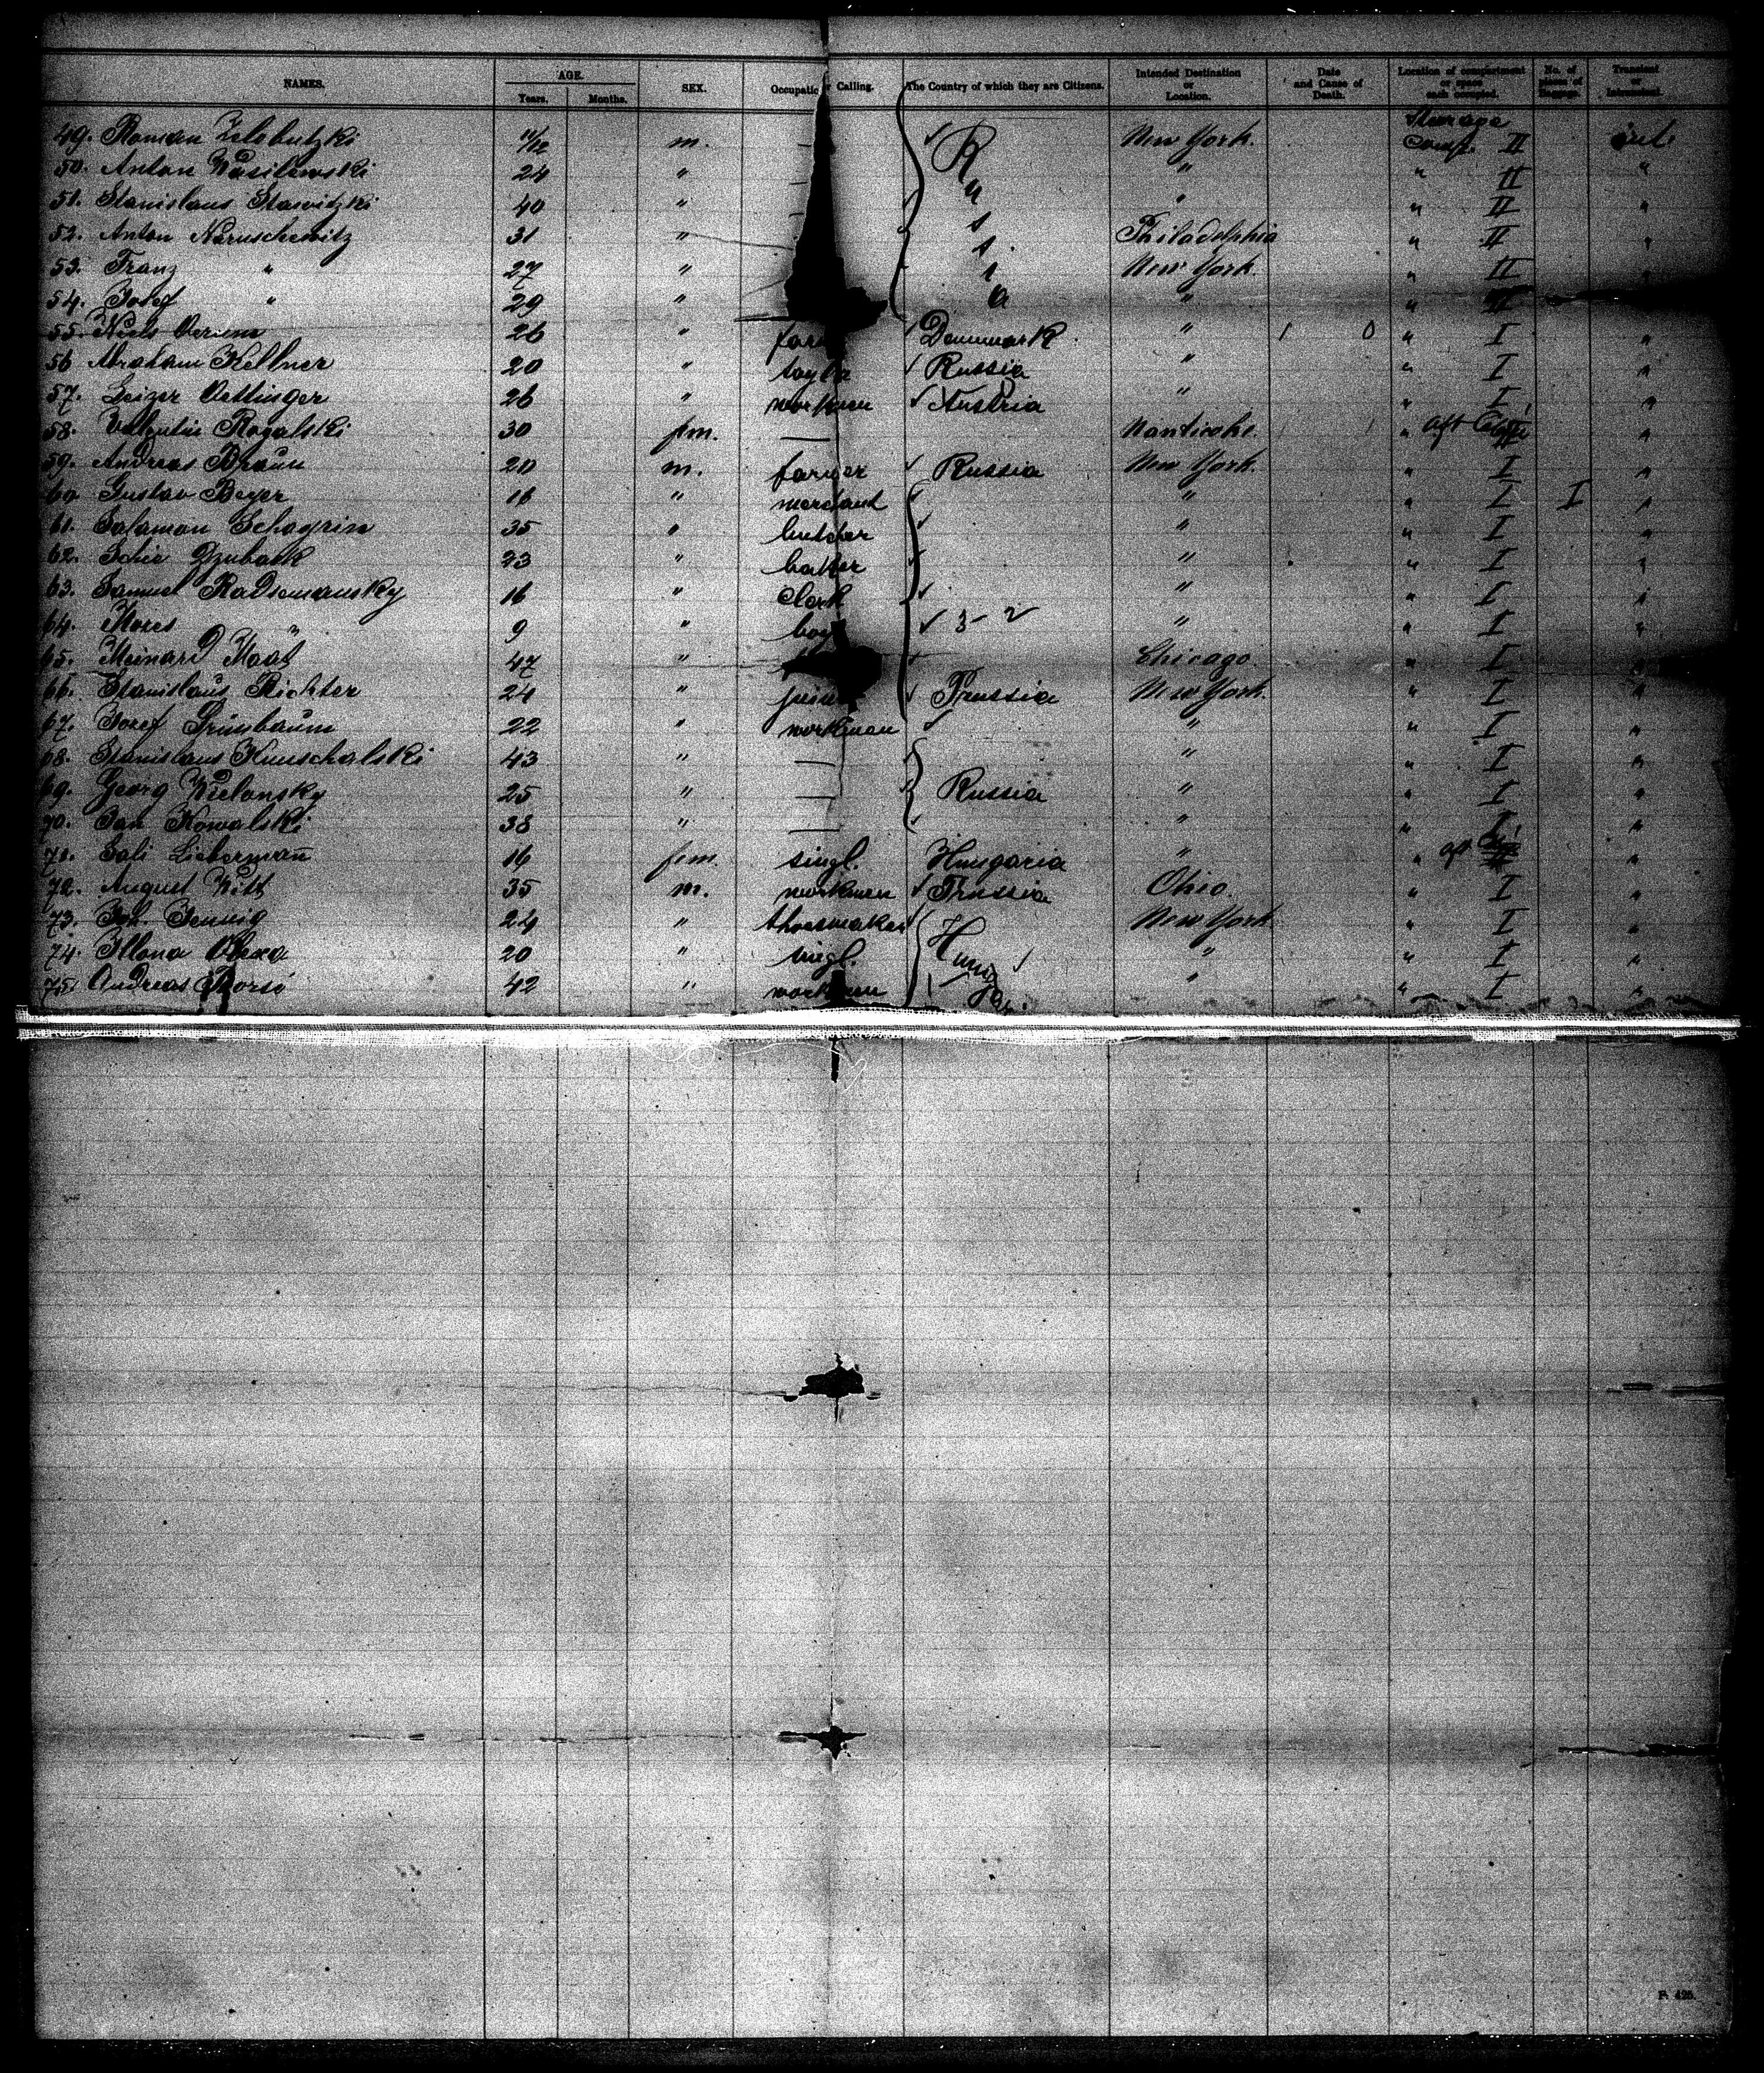 NAMES. AGE. Years. Months. SEX. Occupatio r Calling. The Country of which they are Citizens. Intended Destination or Location. Date and Cause of Death. Location of compartment or space each occupied. No. of pieces of Baggage. Transient or
49. Roman 11/12 m. — R New York. Steerage Comp. II
50. Anton Wasilewski 24 " — u " " II "
51. Stanislaus Stawitzki 40 " — s " " II "
52. Anton Naruschewitz 31 " s Philadelphia " II "
53. Franz " 27 " i New York " II "
54. Josef " 29 " a " " II
55. Niels 26 " far Dennmark " " I "
56 Abraham Kellner 20 " Russia " " I "
57. Leizer Oettinger 26 " workmen Austria " " I "
58. Rogalski 30 fem. — Nanticoke. " aft "
59. Andreas Braun 20 m. farmer Russia New York. " I "
60. Gustav Beyer 16 " merchant " " I I "
61. Salamon Schagrin 35 " butcher " " I "
62. Schie Dzuback 23 " " " I "
63. Samuel Radsemansky 16 " Clerk " " I "
64. Moses " 9 " boy 3-2 " " I "
65. Meinard Maas 47 " Chicago. " I "
66. Stanislaus Richter 24 " Prussia New York. " I "
67. Josef Grünbaum 22 " workman " " I "
68. Stanislaus Kunschalski 43 " — " " I "
69. Georg Wielonsky 25 " — Russia " " I "
70. Jan Kowalski 38 " — " " I "
71. Sali Lieberman̄ 16 fem. singl. Hungaria " " "
72. August Witt 35 m. workmen Prussia Ohio. " I "
73. Joh. Jennig 24 " shoesmaker New York " I "
74. Illona 20 " singl. " " I "
75. Andreas 42 " workmen " " I "
F. 425.